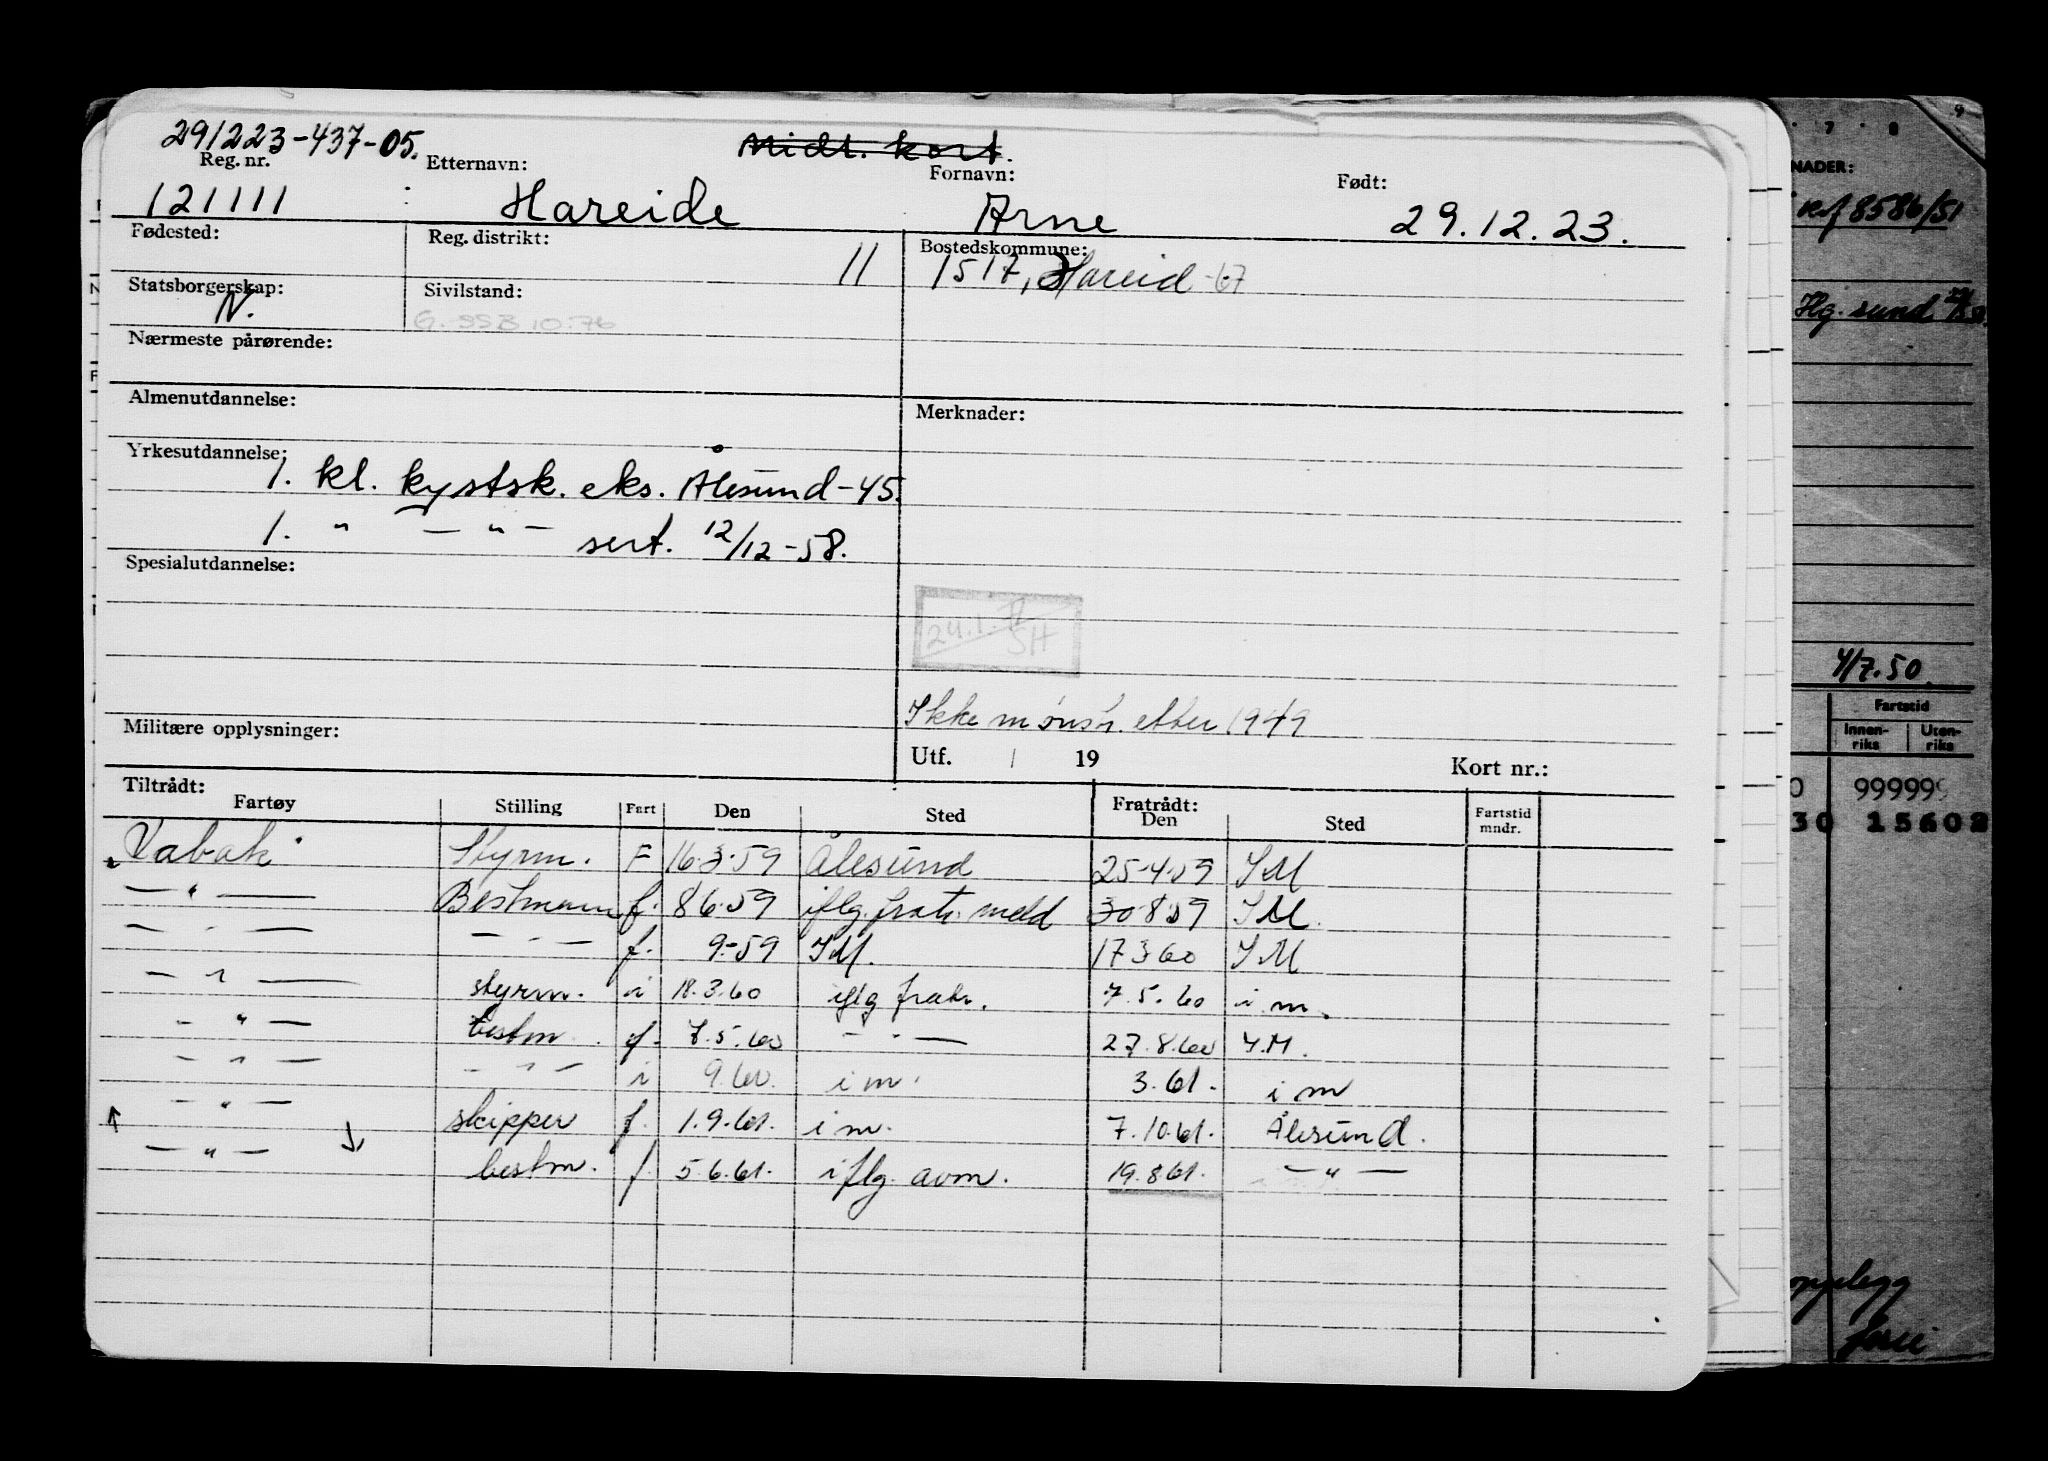 291223-437-05.
Midt. kort.
Reg. nr. Etternavn: Fornavn: Født:
121111 Hareide Arne 29.12.23.
Fødested: Reg. distrikt: 11 Bostedskommune:
1517, Hareid -67
Statsborgerskap: N. Sivilstand:
G. SSB 10.76
Nærmeste pårørende:
Almenutdannelse: Merknader:
Yrkesutdannelse:
1. kl. kystsk. eks. Ålesund-45.
1. " — " — sert. 12/12-58.
Spesialutdannelse:
24.1. SH
Ikke mønstr. etter 1949
Militære opplysninger:
Utf. / 19 Kort nr.:
Tiltrådt: Fratrådt:
Fartøy Stilling Fart Den Sted Den Sted Fartstid mndr.
"Vabak" Styrm. F 16.3.59 Ålesund 25.4.59 IM
— " — Bestmann f. 8 6.59 iflg. fratr. meld 30.8.59 IM.
— " — — " — f. 9.-59 IM. 17 3 60 IM
— " — styrm. i 18.3.60 iflg fratr. 7.5.60 i m.
— " — bestm. f. 7.5.60 — " — 27.8.60 I.M.
— " — — " — i 9.60. i m. 3.61. i m
— " — skipper f. 1.9.61. i m. 7.10.61. Ålesund.
— " — bestm. f. 5.6.61. iflg. avm. 19.8 61. — " —
7 8 9
NADER:
ref 8586/51
Hg. sund
4/7.50.
Fartstid
Innen-riks Uten-riks
0 999999
30 15602
opplegg